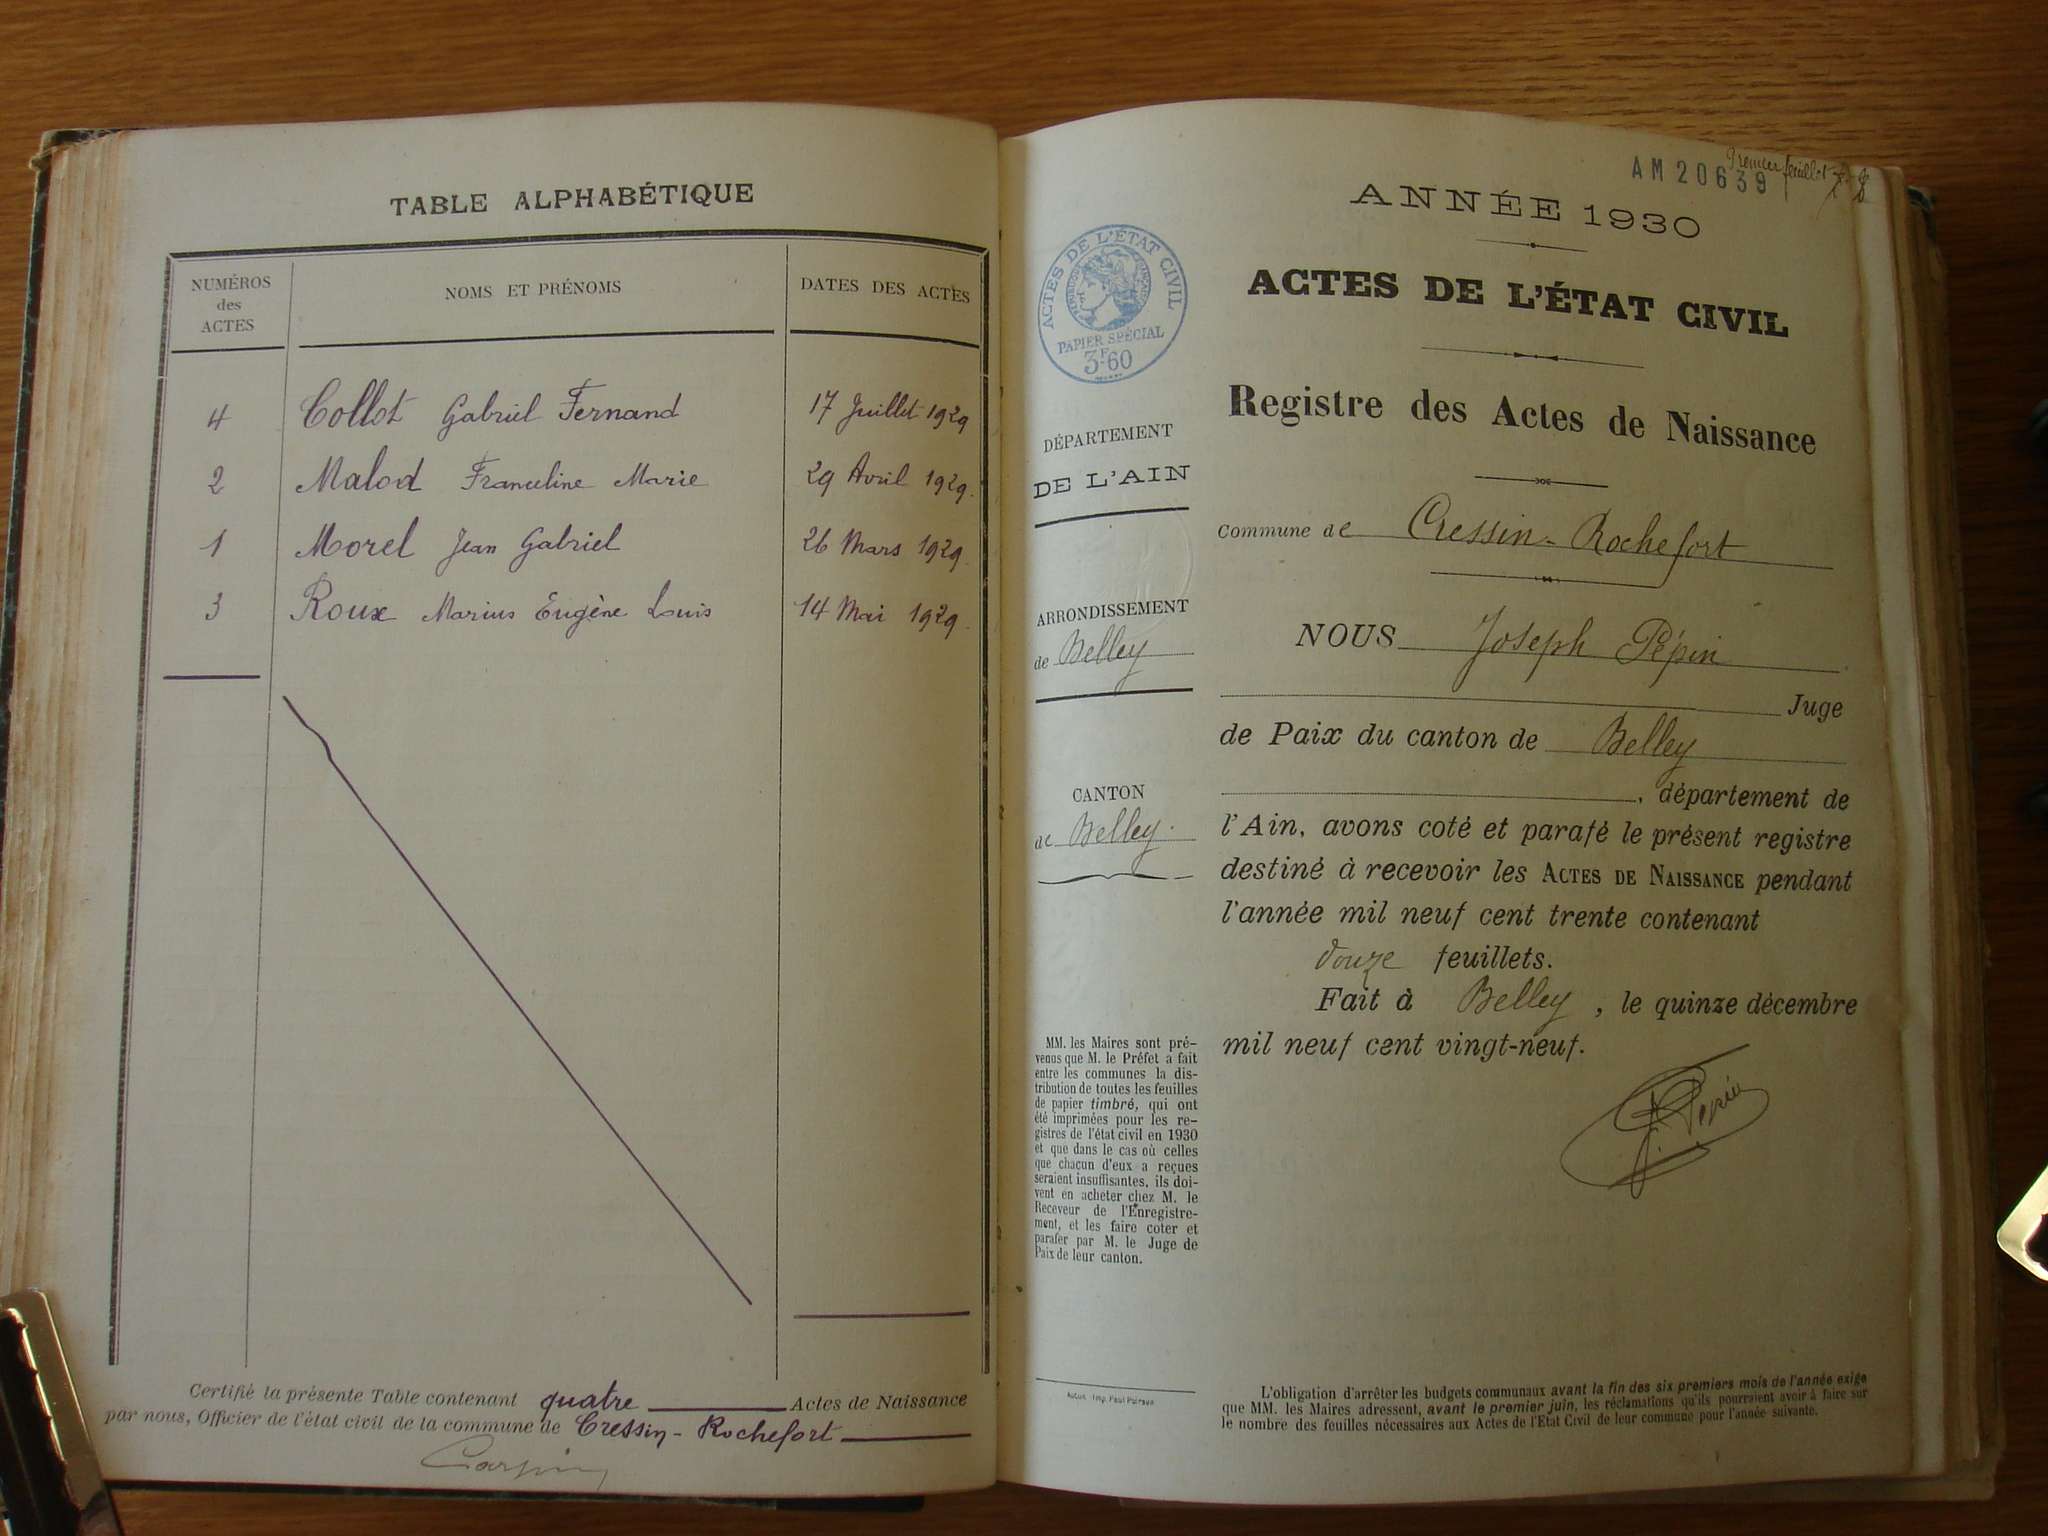 TABLE ALPHABÉTIQUE
NUMÉROS
des
ACTES
NOMS ET PRÉNOMS
DATES DES ACTES
4 Collot Gabriel Fernand 17 Juillet 1929
2 Malod Franceline Marie 29 Avril 1929.
1 Morel Jean Gabriel 26 Mars 1929.
3 Roux Marius Eugène Louis 14 Mai 1929.
Certifié la présente Table contenant quatre Actes de Naissance
par nous, Officier de l'état civil de la commune de Cressin-Rochefort
AM20639
Premier feuillet
ANNÉE 1930
ACTES DE L'ÉTAT CIVIL
Registre des Actes de Naissance
ACTES DE L'ÉTAT CIVIL
PAPIER SPÉCIAL
3F60
DÉPARTEMENT
DE L'AIN
ARRONDISSEMENT
de Belley
CANTON
de Belley.
MM. les Maires sont pré-
venus que M. le Préfet a fait
entre les communes la dis-
tribution de toutes les feuilles
de papier timbré, qui ont
été imprimées pour les re-
gistres de l'état civil en 1930
et que dans le cas où celles
que chacun d'eux a reçues
seraient insuffisantes, ils doi-
vent en acheter chez M. le
Receveur de l'Enregistre-
ment, et les faire coter et
parafer par M. le Juge de
Paix de leur canton.
Commune de Cressin-Rochefort
NOUS Joseph Pépin
Juge
de Paix du canton de Belley
, département de
l'Ain, avons coté et parafé le présent registre
destiné à recevoir les ACTES DE NAISSANCE pendant
l'année mil neuf cent trente contenant
douze feuillets.
Fait à Belley, le quinze décembre
mil neuf cent vingt-neuf.
J. Pépin
L'obligation d'arrêter les budgets communaux avant la fin des six premiers mois de l'année exige
que MM. les Maires adressent, avant le premier juin, les réclamations qu'ils pourraient avoir à faire sur
le nombre des feuilles nécessaires aux Actes de l'Etat Civil de leur commune pour l'année suivante.